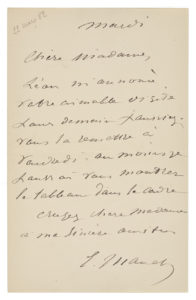 mardi
Chère Madame,
Léon m'annonce
votre aimable visite
pour demain pourriez
vous la remettre à
vendredi au moins je
pourrai vous montrer
le tableau dans le cadre
Croyez chère Madame
a ma sincère
E. Manet